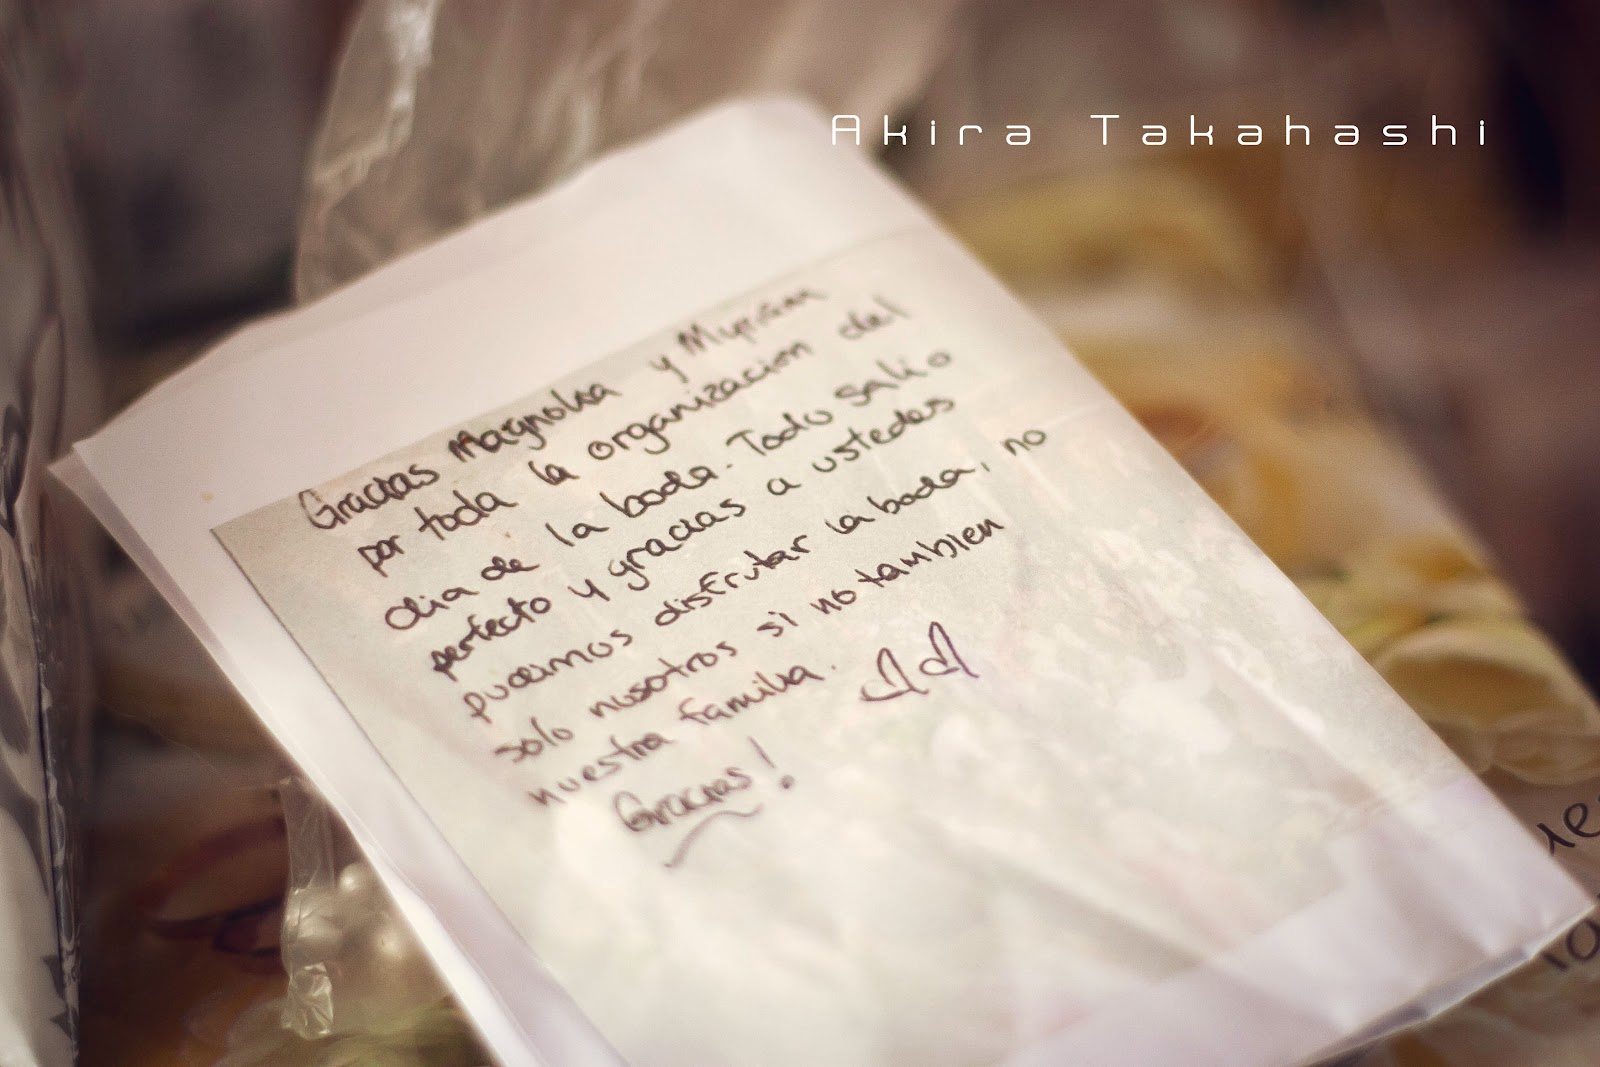 Akira Takahashi
Gracias Magnolia y Myriam
por toda la organizacion del
dia de la boda. Todo salio
perfecto y gracias a ustedes
pudimos disfrutar la boda, no
solo nosotros si no tambien
nuestra familia.
Gracias!